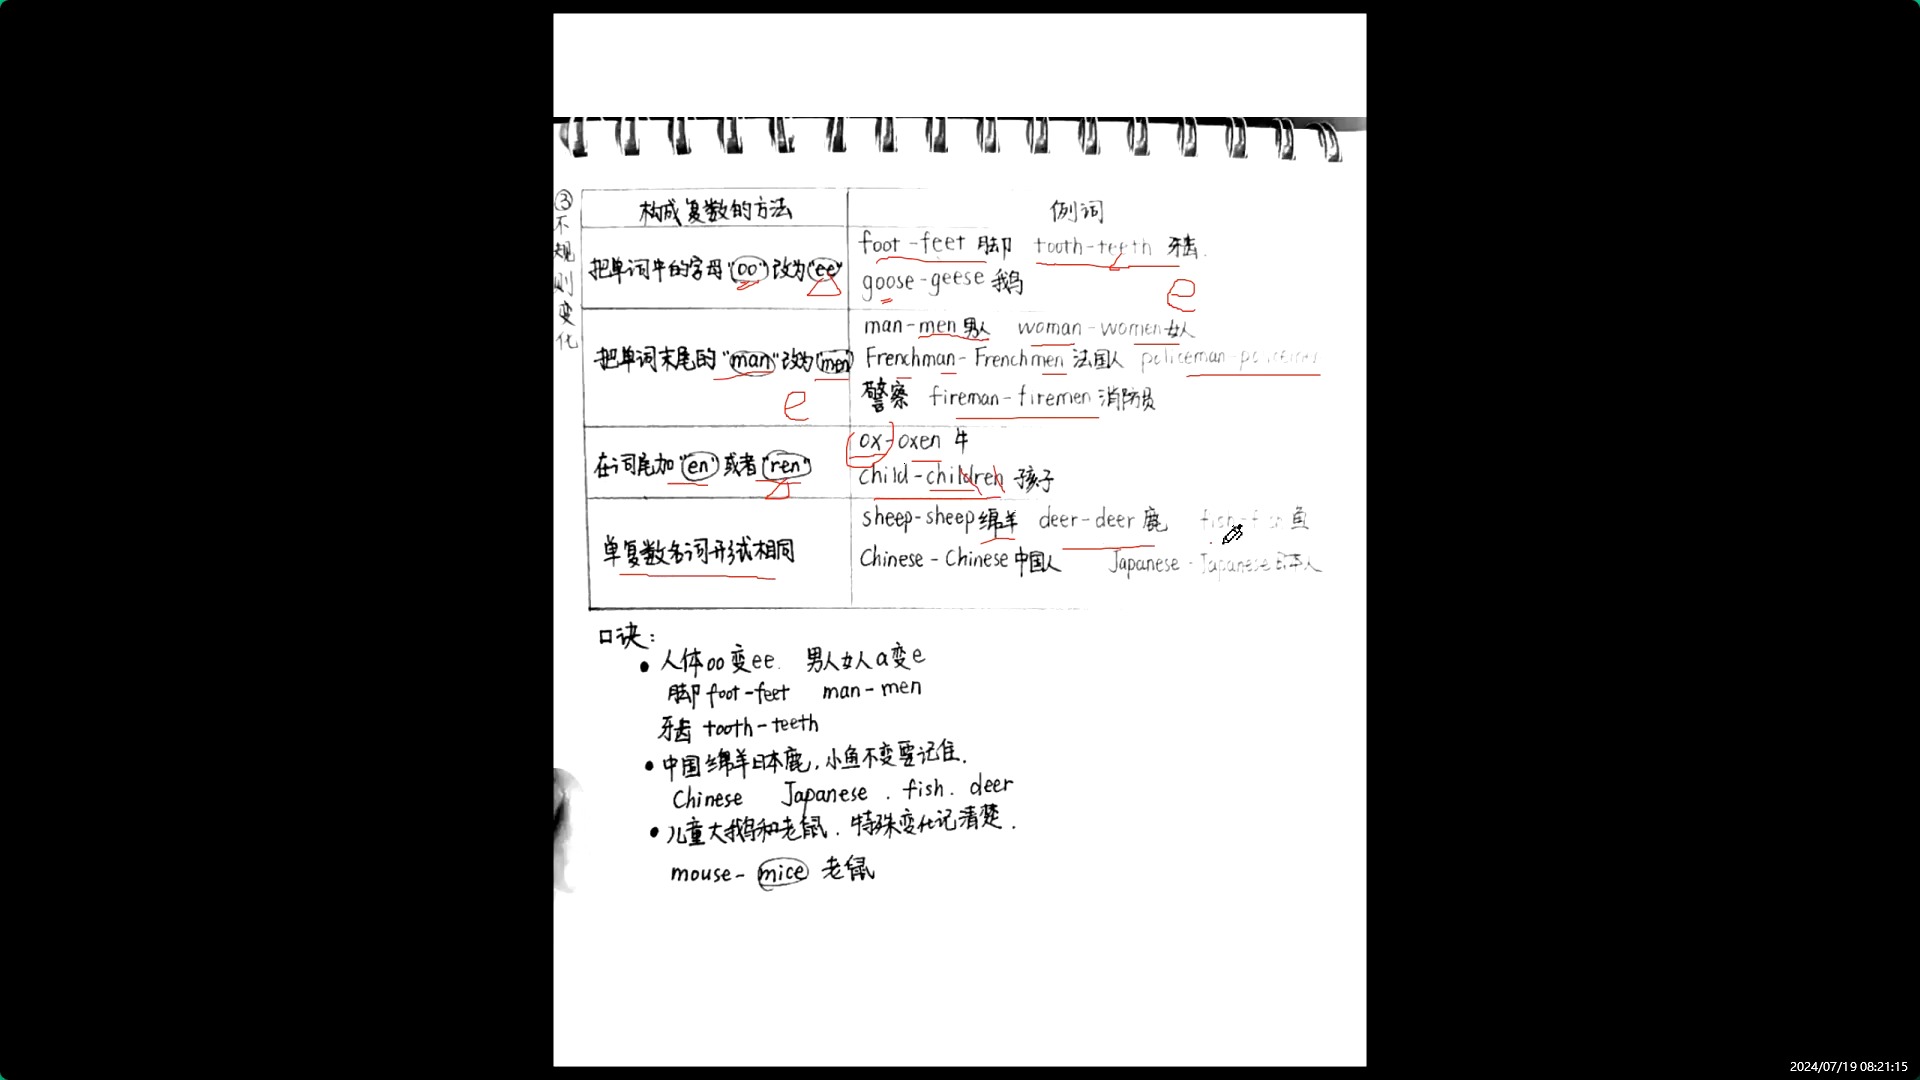 ③不规则变化
构成复数的方法 例词
把单词中的字母"oo"改为"ee" foot-feet 脚 tooth-teeth 牙齿.
goose-geese 鹅
e
man-men 男人 woman-women 女人
把单词末尾的"man"改为"men" Frenchman-Frenchmen 法国人 policeman-policemen
警察 fireman-firemen 消防员
e
ox-oxen 牛
在词尾加"en"或者"ren"
child-children 孩子
sheep-sheep 绵羊 deer-deer 鹿 fish-fish 鱼
单复数名词形式相同
Chinese-Chinese 中国人 Japanese-Japanese 日本人
口诀:
• 人体oo变ee. 男人女人a变e
脚 foot-feet man-men
牙齿 tooth-teeth
• 中国绵羊日本鹿,小鱼不变要记住.
Chinese Japanese . fish . deer
• 儿童大鹅和老鼠.特殊变化记清楚.
mouse- mice 老鼠
2024/07/19 08:21:15